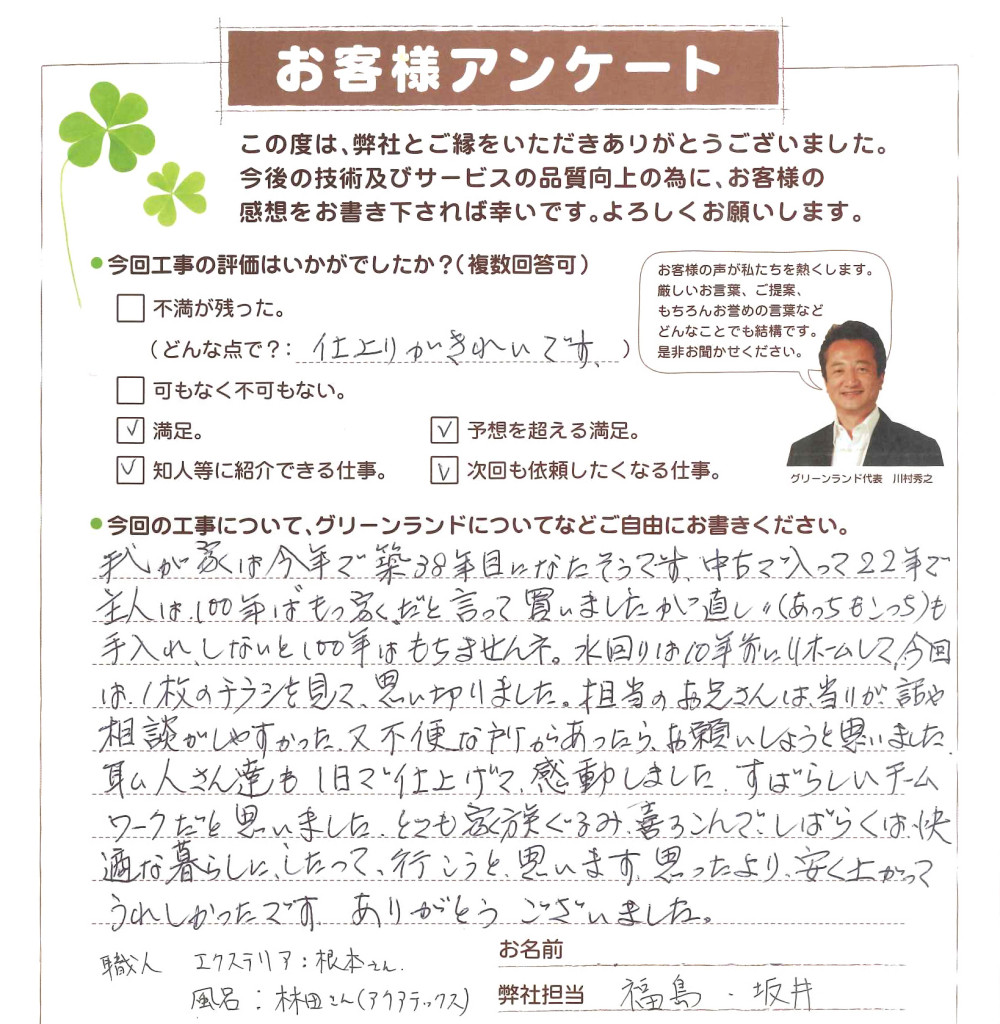 お客様アンケート
この度は、弊社とご縁をいただきありがとうございました。
今後の技術及びサービスの品質向上の為に、お客様の
感想をお書き下されば幸いです。よろしくお願いします。
今回工事の評価はいかがでしたか？（複数回答可）
不満が残った。
（どんな点で？： 仕上りがきれいです、）
可もなく不可もない。
満足。
予想を超える満足。
知人等に紹介できる仕事。
次回も依頼したくなる仕事。
お客様の声が私たちを熱くします。
厳しいお言葉、ご提案、
もちろんお誉めの言葉など
どんなことでも結構です。
是非お聞かせください。
グリーンランド代表 川村秀之
今回の工事について、グリーンランドについてなどご自由にお書きください。
我が家は今年で築38年目になたそうです、中古で入って22年で
主人は、100年ばもつ家くだと言って買いましたが、直し〃(あっちもこっち)も
手入れ、しないと100年はもちませんネ。水回りは10年前にリホームして、今回
は、1枚のチラシを見て、思い切りました。担当のお兄さんは、当りが、話や
相談がしやすかった、又不便な所があったら、お願いしようと思いました、
職人さん達も1日で仕上げて、感動しました、すばらしいチーム
ワークだと思いました、とても家族ぐるみ、喜ろこんで、しばらくは、快
適な暮らしに、したって、行こうと、思います、思ったより、安く上がって
うれしかったです ありがとう ございました。
職人 エクステリア：根本さん
風呂：林田さん(アクアテックス)
お名前
弊社担当 福島・坂井